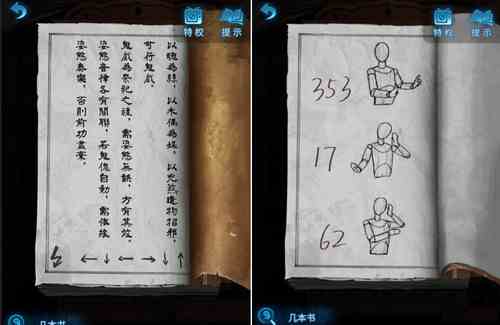 特权
提示
以魂為絲，以木偶為媒，以兇煞遺物招邪，
可行鬼戲。
鬼戲為祭祀之禮，需姿態無誤，方有其效，
姿態音律各有關聯，若鬼傀自動，需依據
姿態奏樂，否則前功盡棄。
几本书
特权
提示
353
17
62
几本书